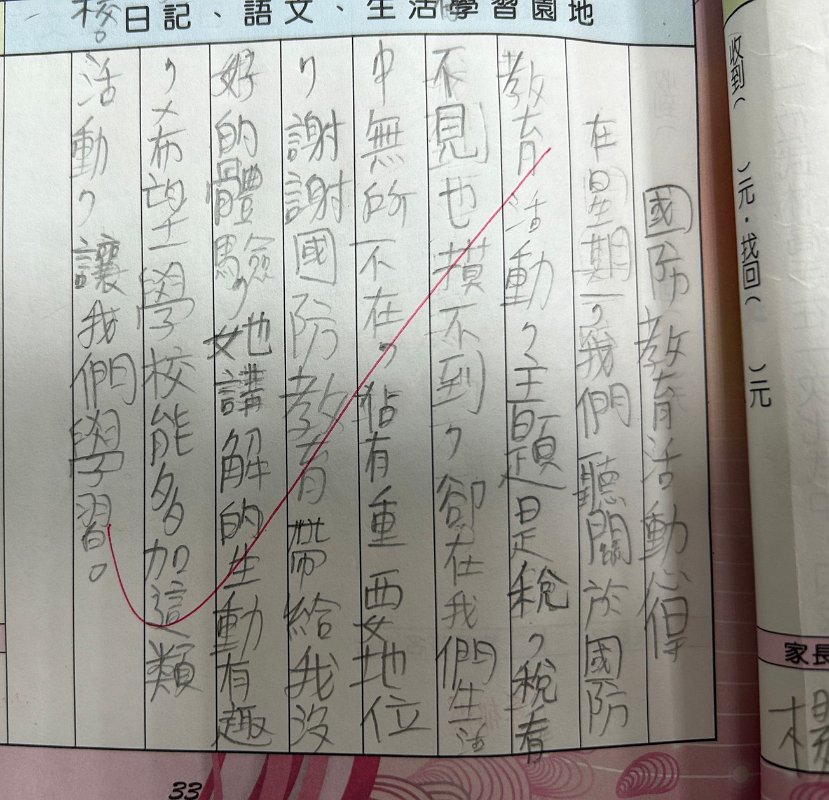 日記、語文、生活學習園地
國防教育活動心得
在星期一,我們聽關於國防
教育活動,主題是稅,稅看
不見也摸不到,卻在我們生活
中無所不在,佔有重要地位
,謝謝國防教育帶給我沒
好的體驗,她講解的生動有趣
,希望學校能多加這類
活動,讓我們學習。
收到( )元.找回( )元
家長
33